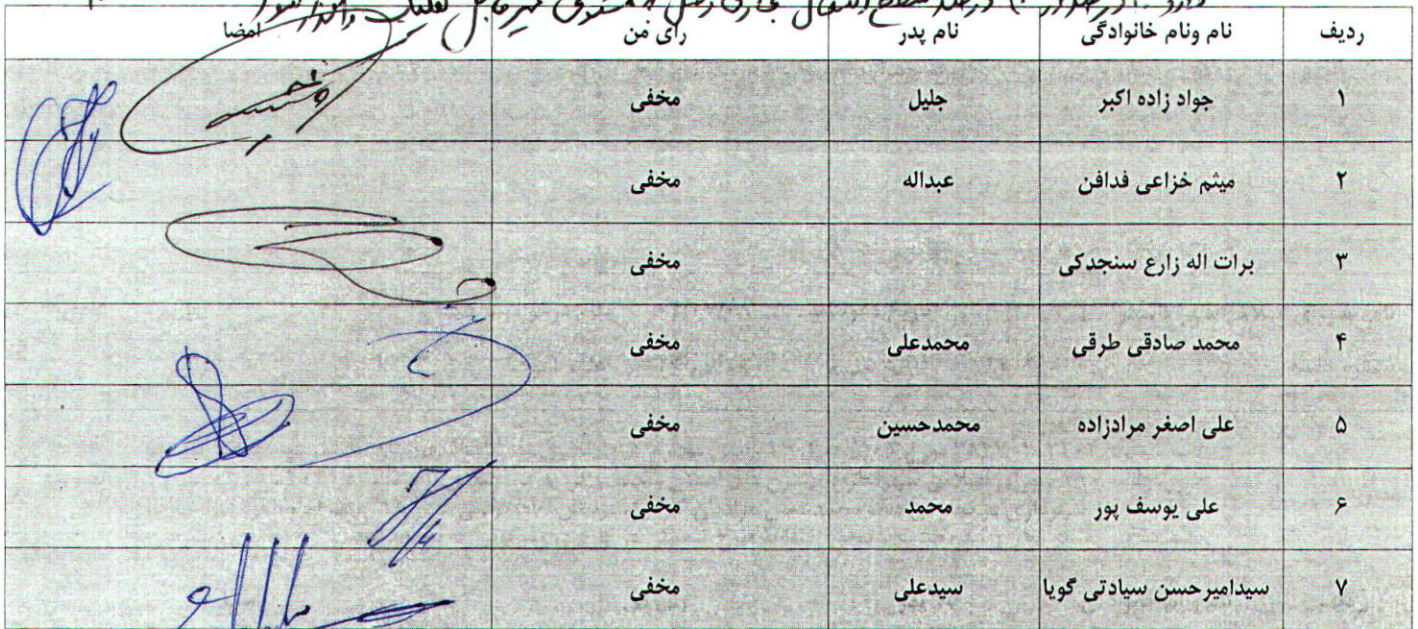 ردیف نام ونام خانوادگی نام پدر رای من امضا
۱ جواد زاده اکبر جلیل مخفی
۲ میثم خزاعی فدافن عبداله مخفی
۳ برات اله زارع سنجدکی مخفی
۴ محمد صادقی طرقی محمدعلی مخفی
۵ علی اصغر مرادزاده محمدحسین مخفی
۶ علی یوسف پور محمد مخفی
۷ سیدامیرحسن سیادتی گویا سیدعلی مخفی